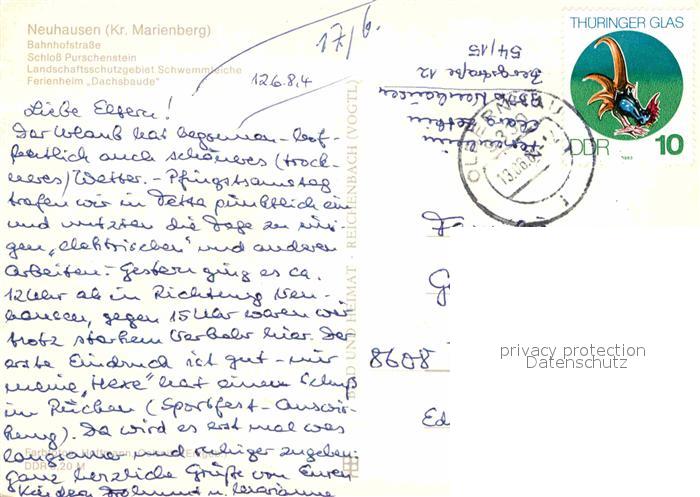 Neuhausen (Kr. Marienberg)
Bahnhofstraße
Schloß Purschenstein
Landschaftsschutzgebiet Schwemmteiche
Ferienheim „Dachsbaude"
17/6.
12.6.84
Liebe Eltern!
Der Urlaub hat begonnen - hof-
fentlich auch schöneres (trock-
neres) Wetter. - Pfingstsamstag
trafen wir in Tetta pünktlich ein
und nutzten die Tage zu eini-
gen „elektrischen" und anderen
Arbeiten. - Gestern ging es ca.
12 Uhr ab in Richtung Neu-
hausen, gegen 15 Uhr waren wir
trotz starkem Verkehr hier. Der
erste Eindruck ist gut - nur
meine „Hexe" hat einen Schuß
im Rücken (Sportfest-Auswir-
kung). Da wird es erst mal was
langsamer und ruhiger zugehen.
Ganz herzliche Grüße von Euren
Kindern Helmut u. Marianne
Farbfoto: Hoffmann
DDR 0,20 M
BILD UND HEIMAT · REICHENBACH (VOGTL)
9336 Neuhausen
Bergstraße 12
54/15
THÜRINGER GLAS
DDR 10
1983
OLBERNHAU
9330
13.06.84
8608
Ed
privacy protection
Datenschutz